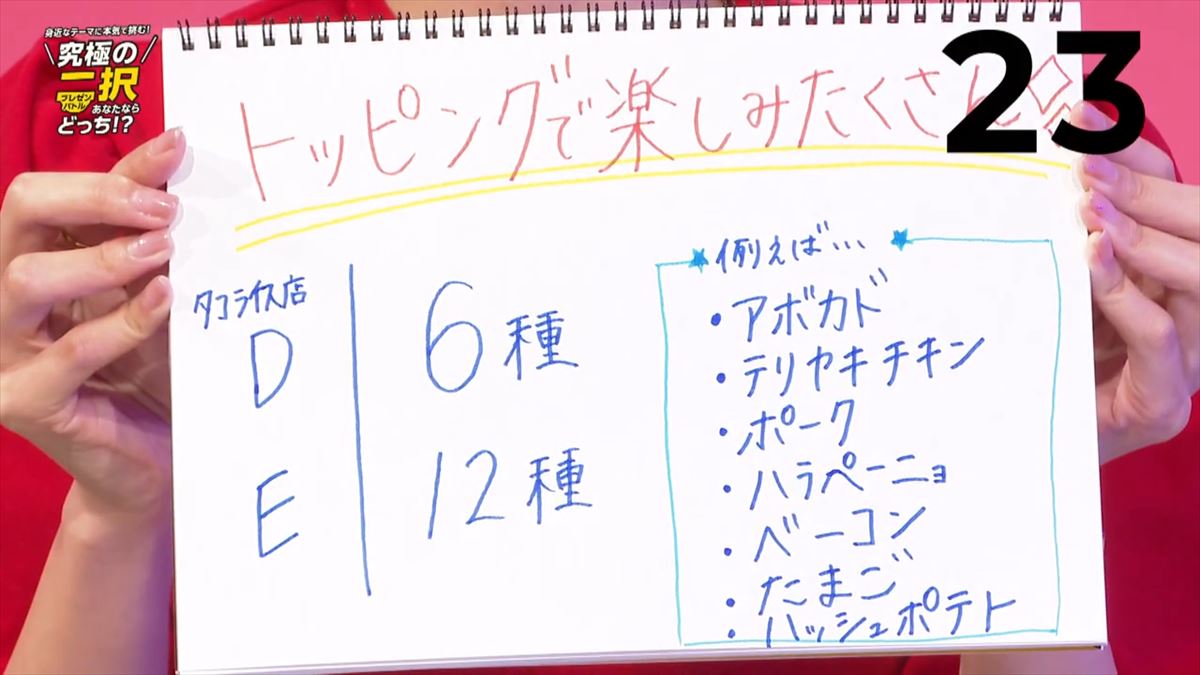 身近なテーマに本気で挑む!
究極の
二択
プレゼン
バトル
あなたなら
どっち!?
23
トッピングで楽しみたくさん
例えば...
タコライス店
D 6種
E 12種
・アボカド
・テリヤキチキン
・ポーク
・ハラペーニョ
・ベーコン
・たまご
・ハッシュポテト